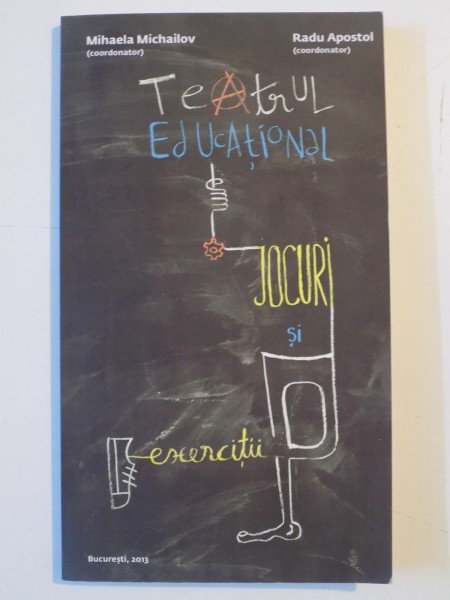 Mihaela Michailov
(coordonator)
Radu Apostol
(coordonator)
TeAtrUL
EdUcAțional
JOCURI
și
exerciții
București, 2013